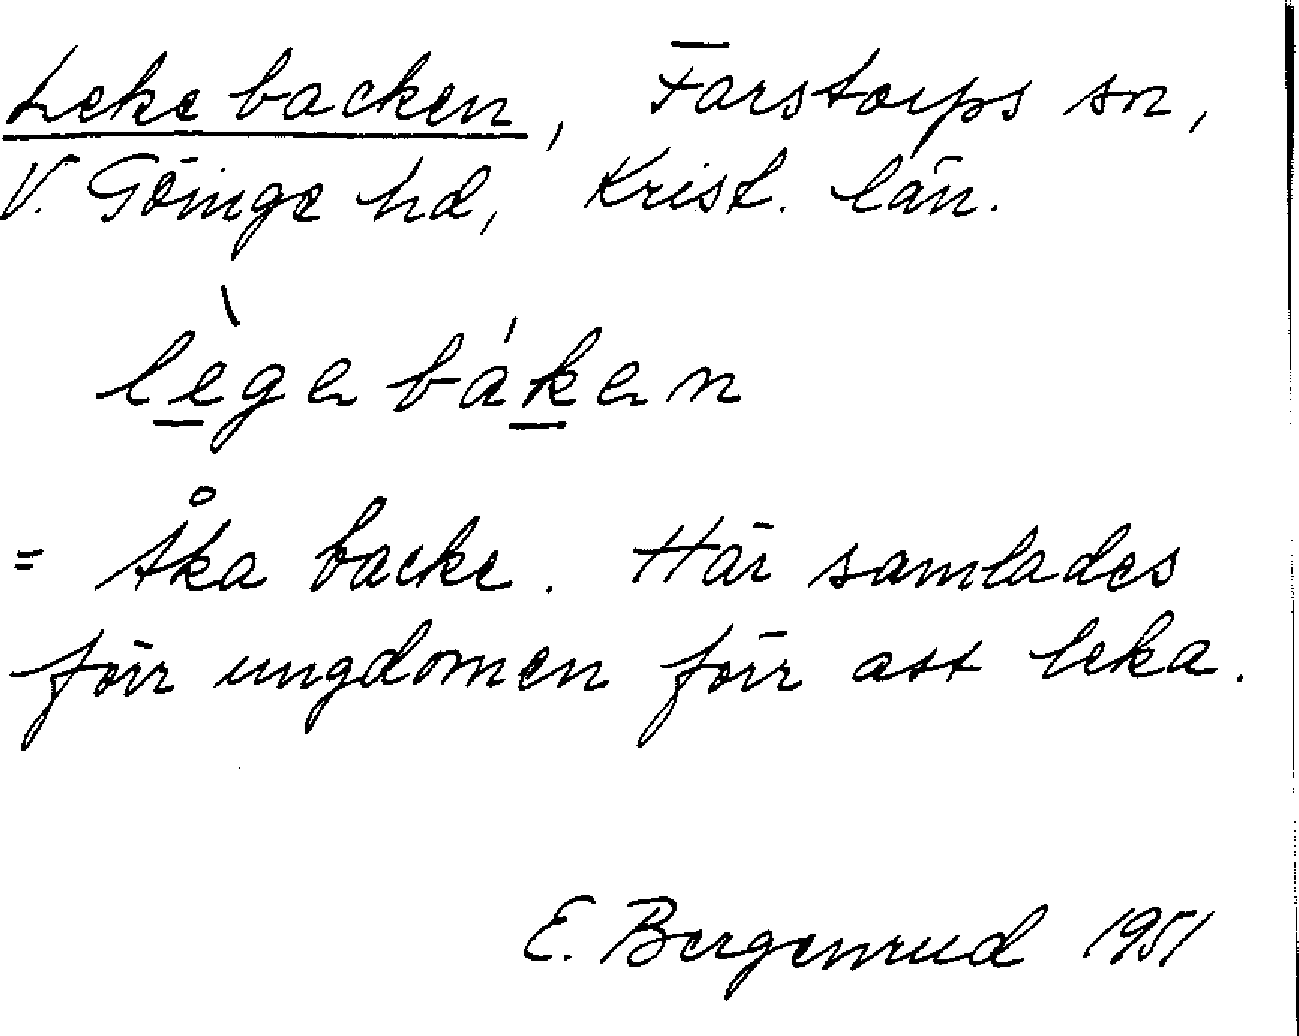 Lekebacken, Farstorps sn,
V. Göinge hd, Krist. län.
lègebáken
= Åka backe. Här samlades
förr ungdomen förr att leka.
E. Bergenrud 1951